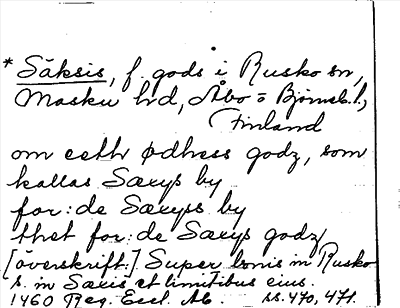 * Säksis, f. gods i Rusko sn,
Masku hd, Åbo = Björneb. l.,
Finland
om eeth ødhess godz, som
kallas Sæxys by
for:de Sæxys by
thet for:de Sæxys godz
[överskrift:] Super bonis in Rusko
s. in Saxis et limitibus eius.
1460 Reg. Eccl. Ab. ss. 470, 471.